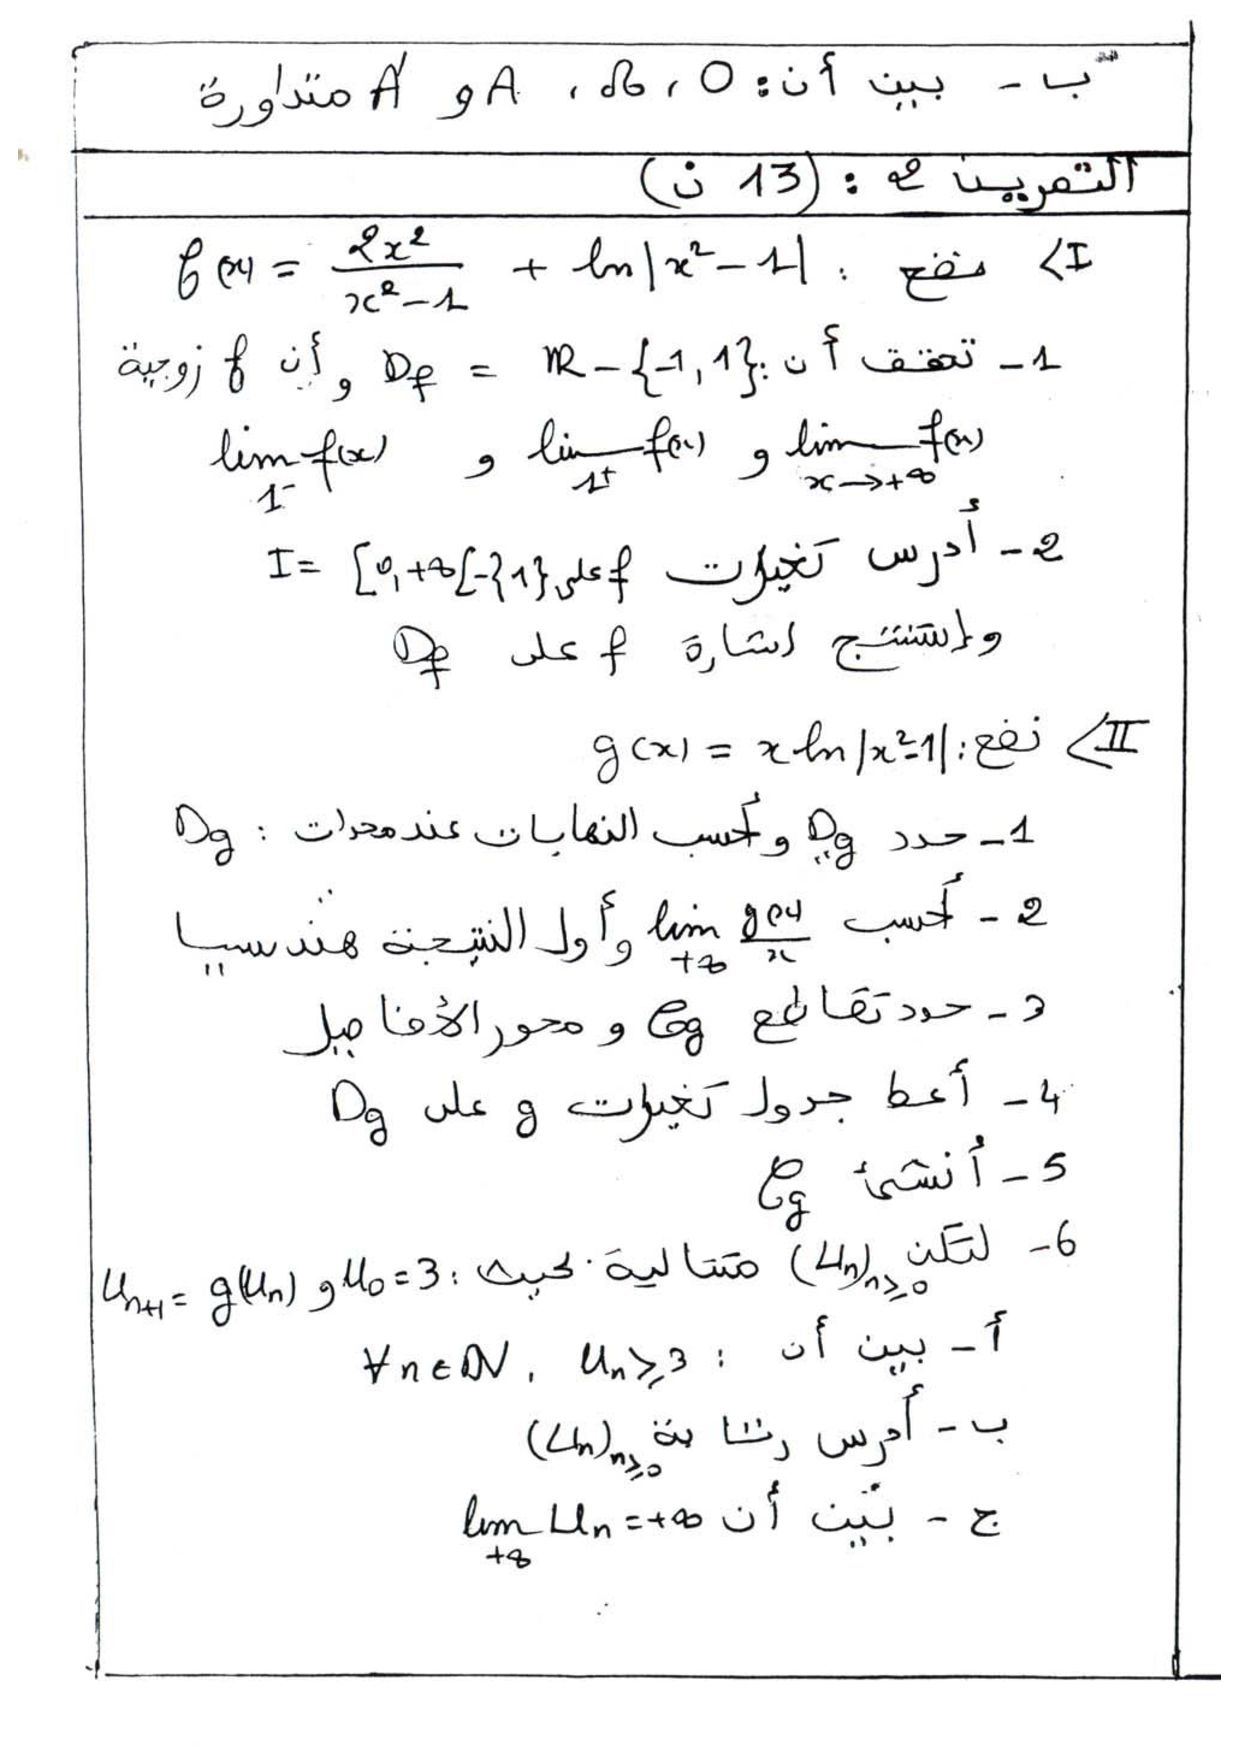 ب - بين أن: O ، Ω ، A و A' متداورة
التمرين 2 : (13 ن)
I> نضع : f(x) = \frac{2x²}{x²-1} + ln|x²-1|
1- تحقق أن: D_f = ℝ-{-1,1} وأن f زوجية
lim_{x→+∞} f(x) و lim_{1⁺} f(x) و lim_{1⁻} f(x)
2- أدرس تغيرات f على I = [0,+∞[-{1}
وإستنتج اشارة f على D_f
II> نضع: g(x) = x ln|x²-1|
1- حدد D_g وأحسب النهايات عند محدات D_g :
2- أحسب lim_{+∞} \frac{g(x)}{x} وأول النتيجة هندسيا
3- حدد تقاطع C_g و محور الأفاصيل
4- أعط جدول تغيرات g على D_g
5- أنشئ C_g
6- لتكن (U_n)_{n≥0} متتالية بحيث : U_0=3 و U_{n+1}=g(U_n)
أ- بين أن : ∀n∈ℕ, U_n≥3
ب- أدرس رتابة (U_n)_{n≥0}
ج- بيّن أن lim_{+∞} U_n = +∞